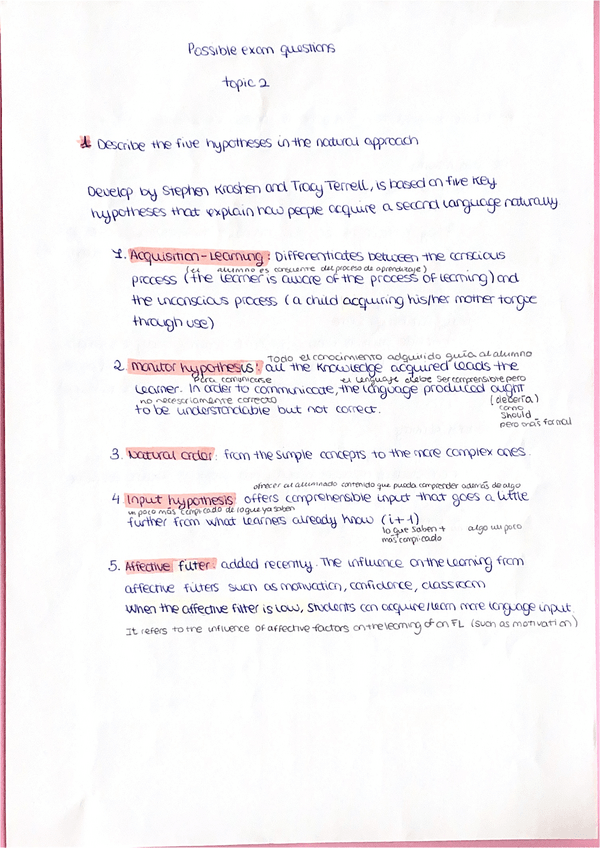 Possible exam questions
topic 2
1 Describe the five hypotheses in the natural approach
Develop by Stephen Krashen and Tracy Terrell, is based on five key
hypotheses that explain how people acquire a second language naturally
1. Acquisition-Learning: Differentiates between the conscious
(el alumno es consciente del proceso de aprendizaje)
process (the learner is aware of the process of learning) and
the unconscious process (a child acquiring his/her mother tongue
through use)
Todo el conocimiento adquirido guía al alumno
2. Monitor hypothesis: all the knowledge acquired leads the
Para comunicarse el lenguaje debe ser comprensible pero
learner. In order to communicate, the language produced ought
no necesariamente correcto (debería)
to be understandable but not correct. como
should
pero más formal
3. Natural order: from the simple concepts to the more complex ones.
ofrecer al alumnado contenido que pueda comprender además de algo
4 Input hypothesis: offers comprehensible input that goes a little
un poco más complicado de lo que ya saben
further from what learners already know (i+1)
lo que saben + algo un poco
más complicado
5. Affective filter: added recently. The influence on the learning from
affective filters such as motivation, confidence, classroom
When the affective filter is low, students can acquire/learn more language input.
It refers to the influence of affective factors on the learning of an FL (such as motivation)